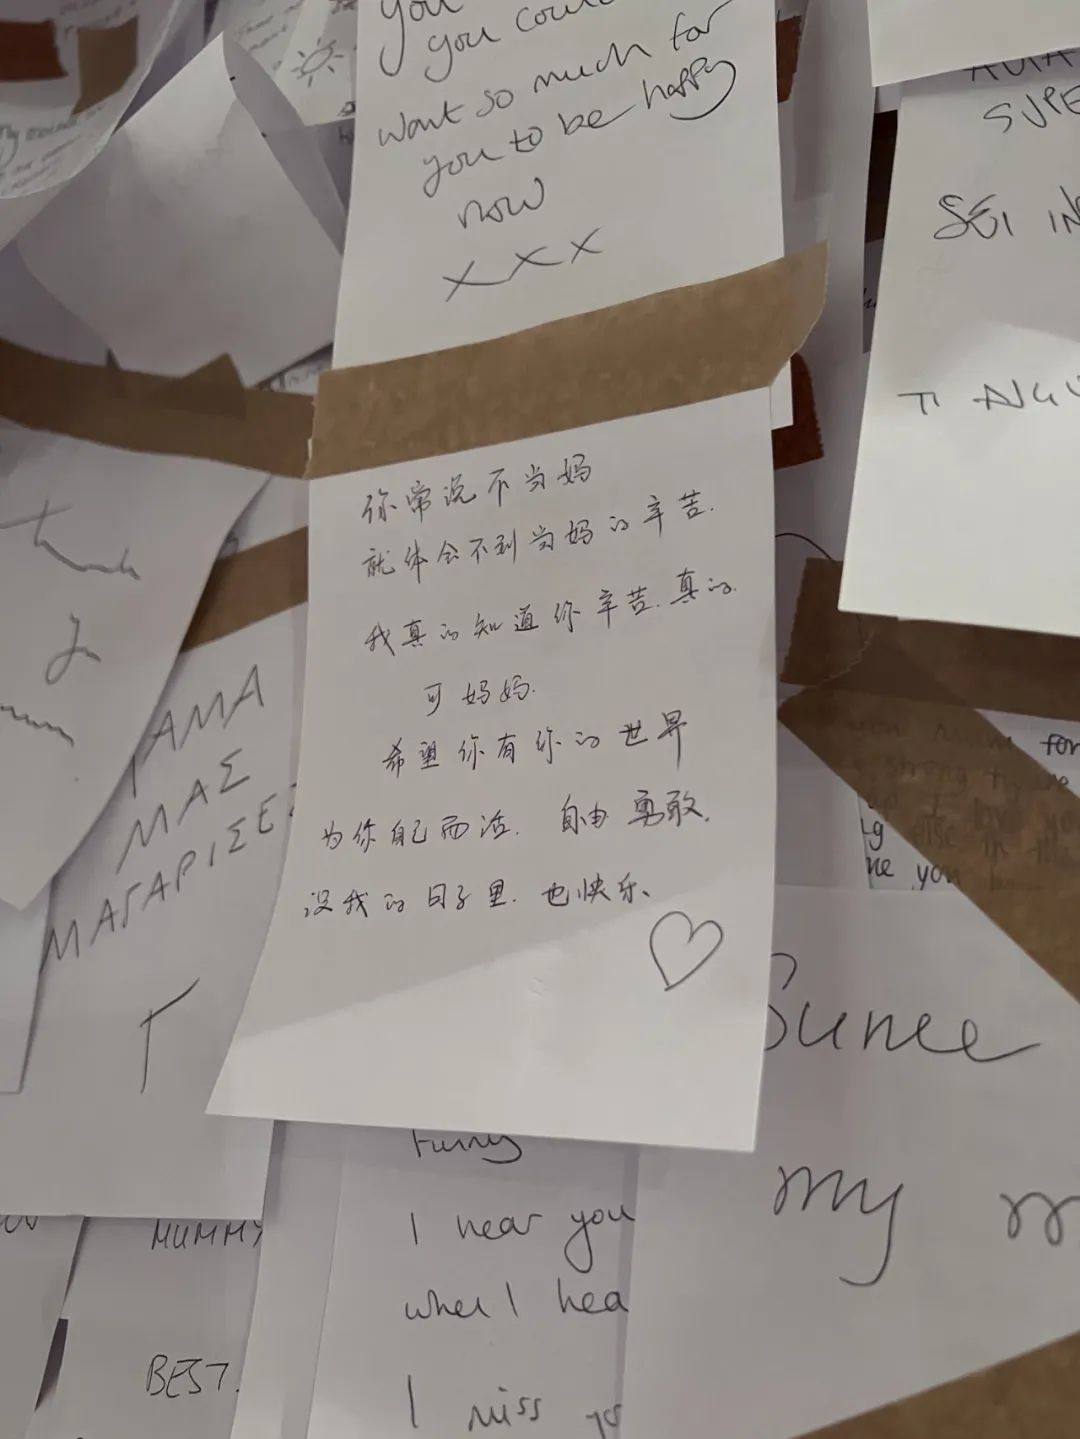 you
you could
want so much for
you to be happy
now
xxx
SUPE
SEI IN
TI
你常说不当妈
就体会不到当妈的辛苦.
我真的知道你辛苦.真的.
可妈妈.
希望你有你的世界
为你自己而活. 自由 勇敢.
没我的日子里. 也快乐、
ΜΑΣ
ΜΑΓΑΡΙΣΕΣ
for
strong
I love yo
you
Sunee
my m
MUMMY
BEST.
funny
I hear you
when I hea
I miss yo